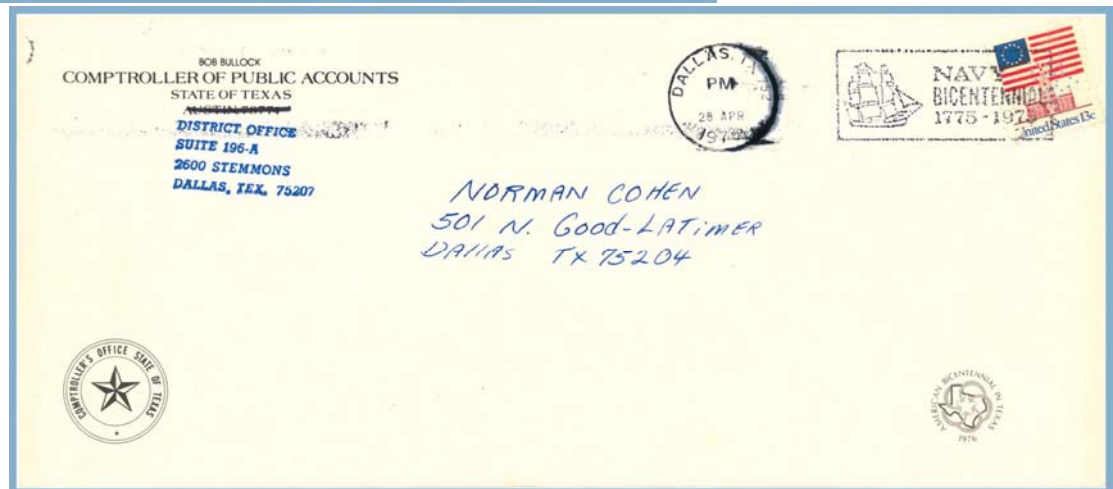 BOB BULLOCK
COMPTROLLER OF PUBLIC ACCOUNTS
STATE OF TEXAS
AUSTIN 78774
DISTRICT OFFICE
SUITE 196-A
2600 STEMMONS
DALLAS, TEX. 75207
DALLAS, TX 752
PM
28 APR
197
NAVY
BICENTENNIAL
1775-1975
United States 13c
NORMAN COHEN
501 N. Good-LATIMER
DAllAS TX 75204
COMPTROLLER'S OFFICE STATE OF TEXAS
AMERICAN BICENTENNIAL IN TEXAS
1976